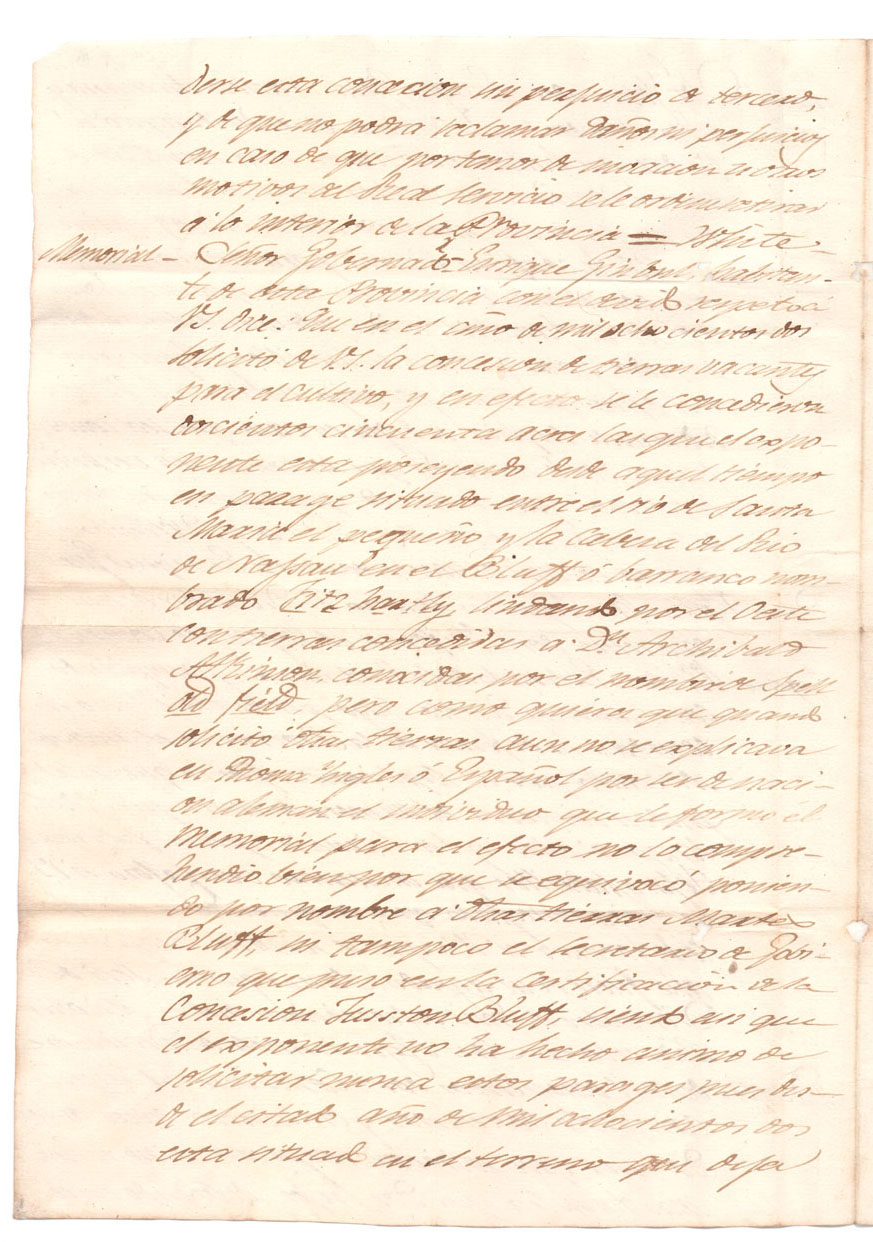 derse esta concecion sin perjuicio de tercero,
y de que no podrá reclamar daños ni perjuicios
en caso de que por temor de invacion u otros
motivos del Real servicio se le ordene retirar
á lo interior de la Provincia = White
Memorial – Señor Gobernador Enrique habitan-
te de esta Provincia con el devido respeto á
V.S. dice: Que en el año de mil ocho cientos dos
solicitó de V.S. la concesion de tierras vacantes
para el cultivo, y en efecto se le concedieron
doscientos cincuenta acres las que el expo-
nente esta poseyendo desde aquel tiempo
en parage situado entre el rio de Santa
Maria el pequeño y la Cabeza del Rio
de Nassau en el Bluff ó barranco nom-
brado lindando por el Oeste
con tierras concedidas a Dn Archibald
Atkinson, conocidas por el nombre de Spell
ad field pero como quiera que quando
solicitó dhas tierras aun no se explicava
en Idioma Ingles ó Español por ser de naci-
on aleman el individuo que le formó el
Memorial para el efecto no lo compre-
hendio bien por que se equivocó ponien-
do por nombre a dhas tierras
Bluff, ni tampoco el secretario de Govi-
erno que puso en la Certificación de la
Concesion Bluff, siendo asi que
el exponente no ha hecho animo de
solicitar nunca estos parages pues des-
de el citado año de mil ochocientos dos
esta situado en el terreno que deja